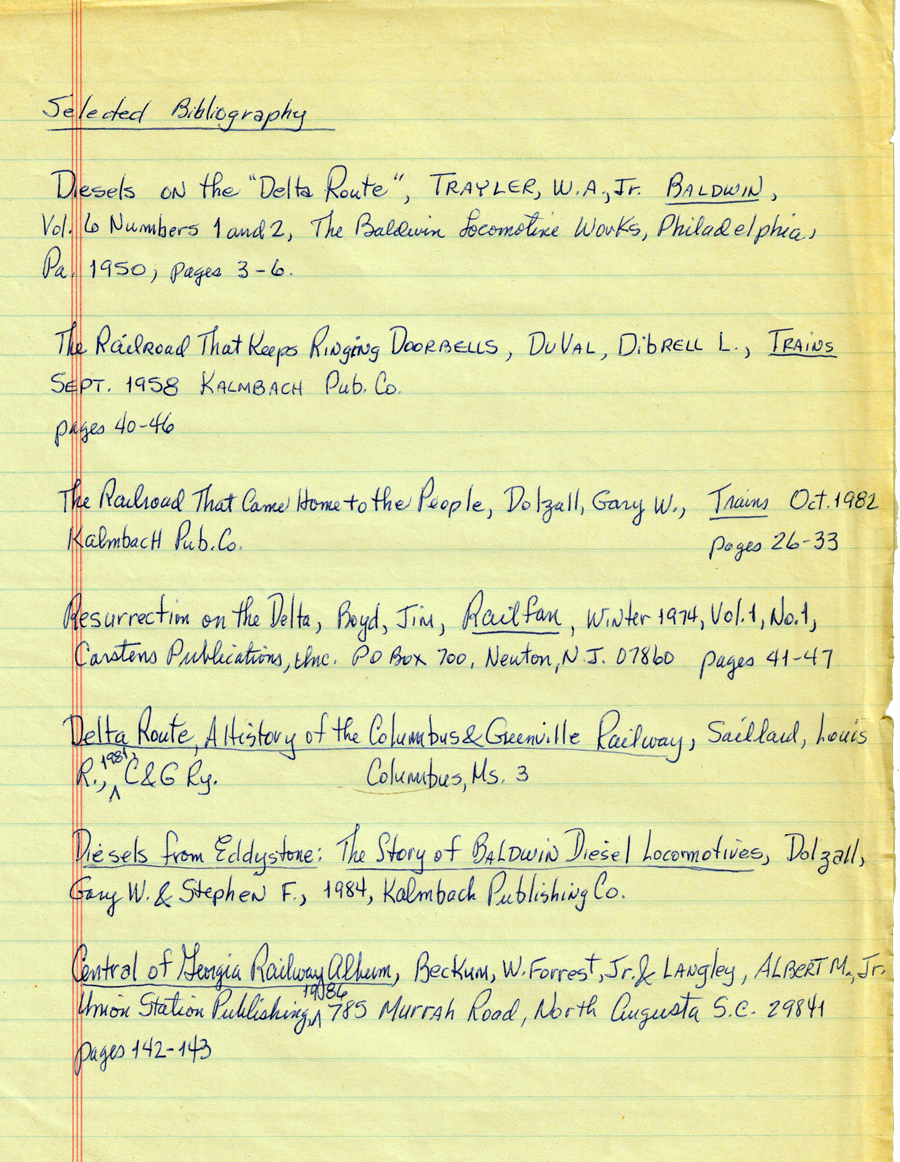 Selected Bibliography
Diesels on the "Delta Route", TRAYLER, W.A., Jr. BALDWIN,
Vol. 6 Numbers 1 and 2, The Baldwin Locomotive Works, Philadelphia,
Pa. 1950, pages 3-6.
The Railroad That Keeps Ringing Doorbells, DuVal, Dibrell L., TRAINS
SEPT. 1958 KALMBACH Pub. Co.
pages 40-46
The Railroad That Came Home to the People, Dolzall, Gary W., Trains Oct. 1982
Kalmbach Pub. Co. pages 26-33
Resurrection on the Delta, Boyd, Jim, Railfan, Winter 1974, Vol. 1, No. 1,
Carstens Publications, Inc. PO Box 700, Newton, N.J. 07860 pages 41-47
Delta Route, A History of the Columbus & Greenville Railway, Saillard, Louis
R., 1981, C&G Ry. Columbus, Ms. 3
Diesels from Eddystone: The Story of BALDWIN Diesel Locomotives, Dolzall,
Gary W. & Stephen F., 1984, Kalmbach Publishing Co.
Central of Georgia Railway Album, Beckum, W. Forrest, Jr. & Langley, ALBERT M., Jr.
Union Station Publishing, 1986 785 Murrah Road, North Augusta S.C. 29841
pages 142-143